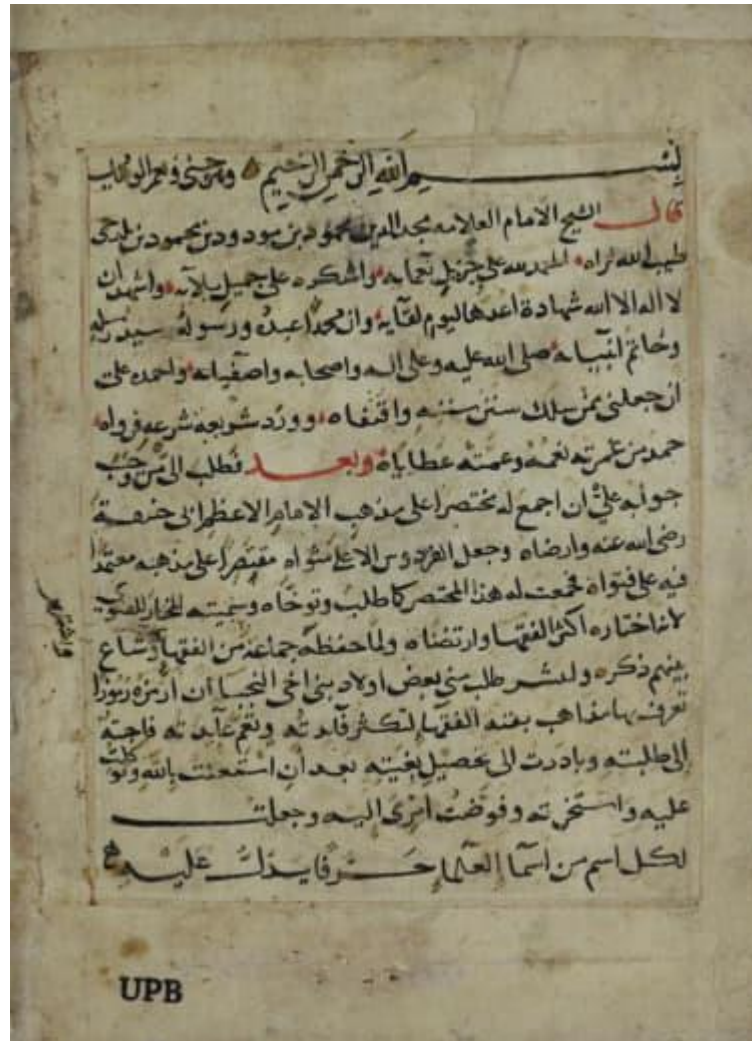 بسم الله الرحمن الرحيم وهو حسبي ونعم الوكيل
قال الشيخ الامام العلامه مجد الدين محمود بن مودود بن محمود بن بلدجى
طيب الله ثراه الحمد لله على جزيل نعمايه واشكره على جميل بلآيه واشهد ان
لا اله الا الله شهادة اعدها ليوم لقآيه وان محمدا عبده ورسوله سيد رسله
وخاتم انبيايه صلى الله عليه وعلى اله واصحابه واصفيايه واحمده على
ان جعلنى ممن سلك سنن سننه واقتفاه وورد شريعة شرعه فرواه
حمد من غمرته نعمه وعمته عطاياه وبعد فطلب الى من وجب
جوابه على ان اجمع له مختصرا على مذهب الامام الاعظم ابى حنيفة
رضى الله عنه وارضاه وجعل الفردوس الاعلى مثواه مقتصرا على مذهبه معتمدا
فيه على فتواه فجمعت له هذا المختصر كما طلب وتوخاه وسميته المختار للفتوى
لانه اختاره اكثر الفقها وارتضاه ولما حفظه جماعة من الفقها وشاع
واشتهر
بينهم ذكره وانتشر طلب منى بعض اولاد بنى اخى النجبا ان ارمزه رموزا
تعرف بها مذاهب بقية الفقها لتكثر فآيدته وتعم عآيدته فاجبته
الى طلبته وبادرت الى تحصيل بغيته بعد ان استعنت بالله وتوكلت
عليه واستخرته وفوضت امرى اليه وجعلت
لكل اسم من اسما العلما حرفا يدل عليه
UPB